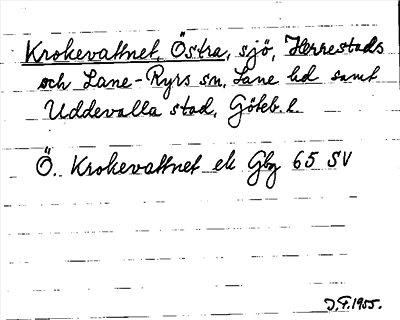 Krokevattnet, Östra, sjö, Herrestads
och Lane-Ryrs sn, Lane hd samt
Uddevalla stad, Göteb. l.
Ö. Krokevattnet ek Gbg 65 SV
J.F. 1955.